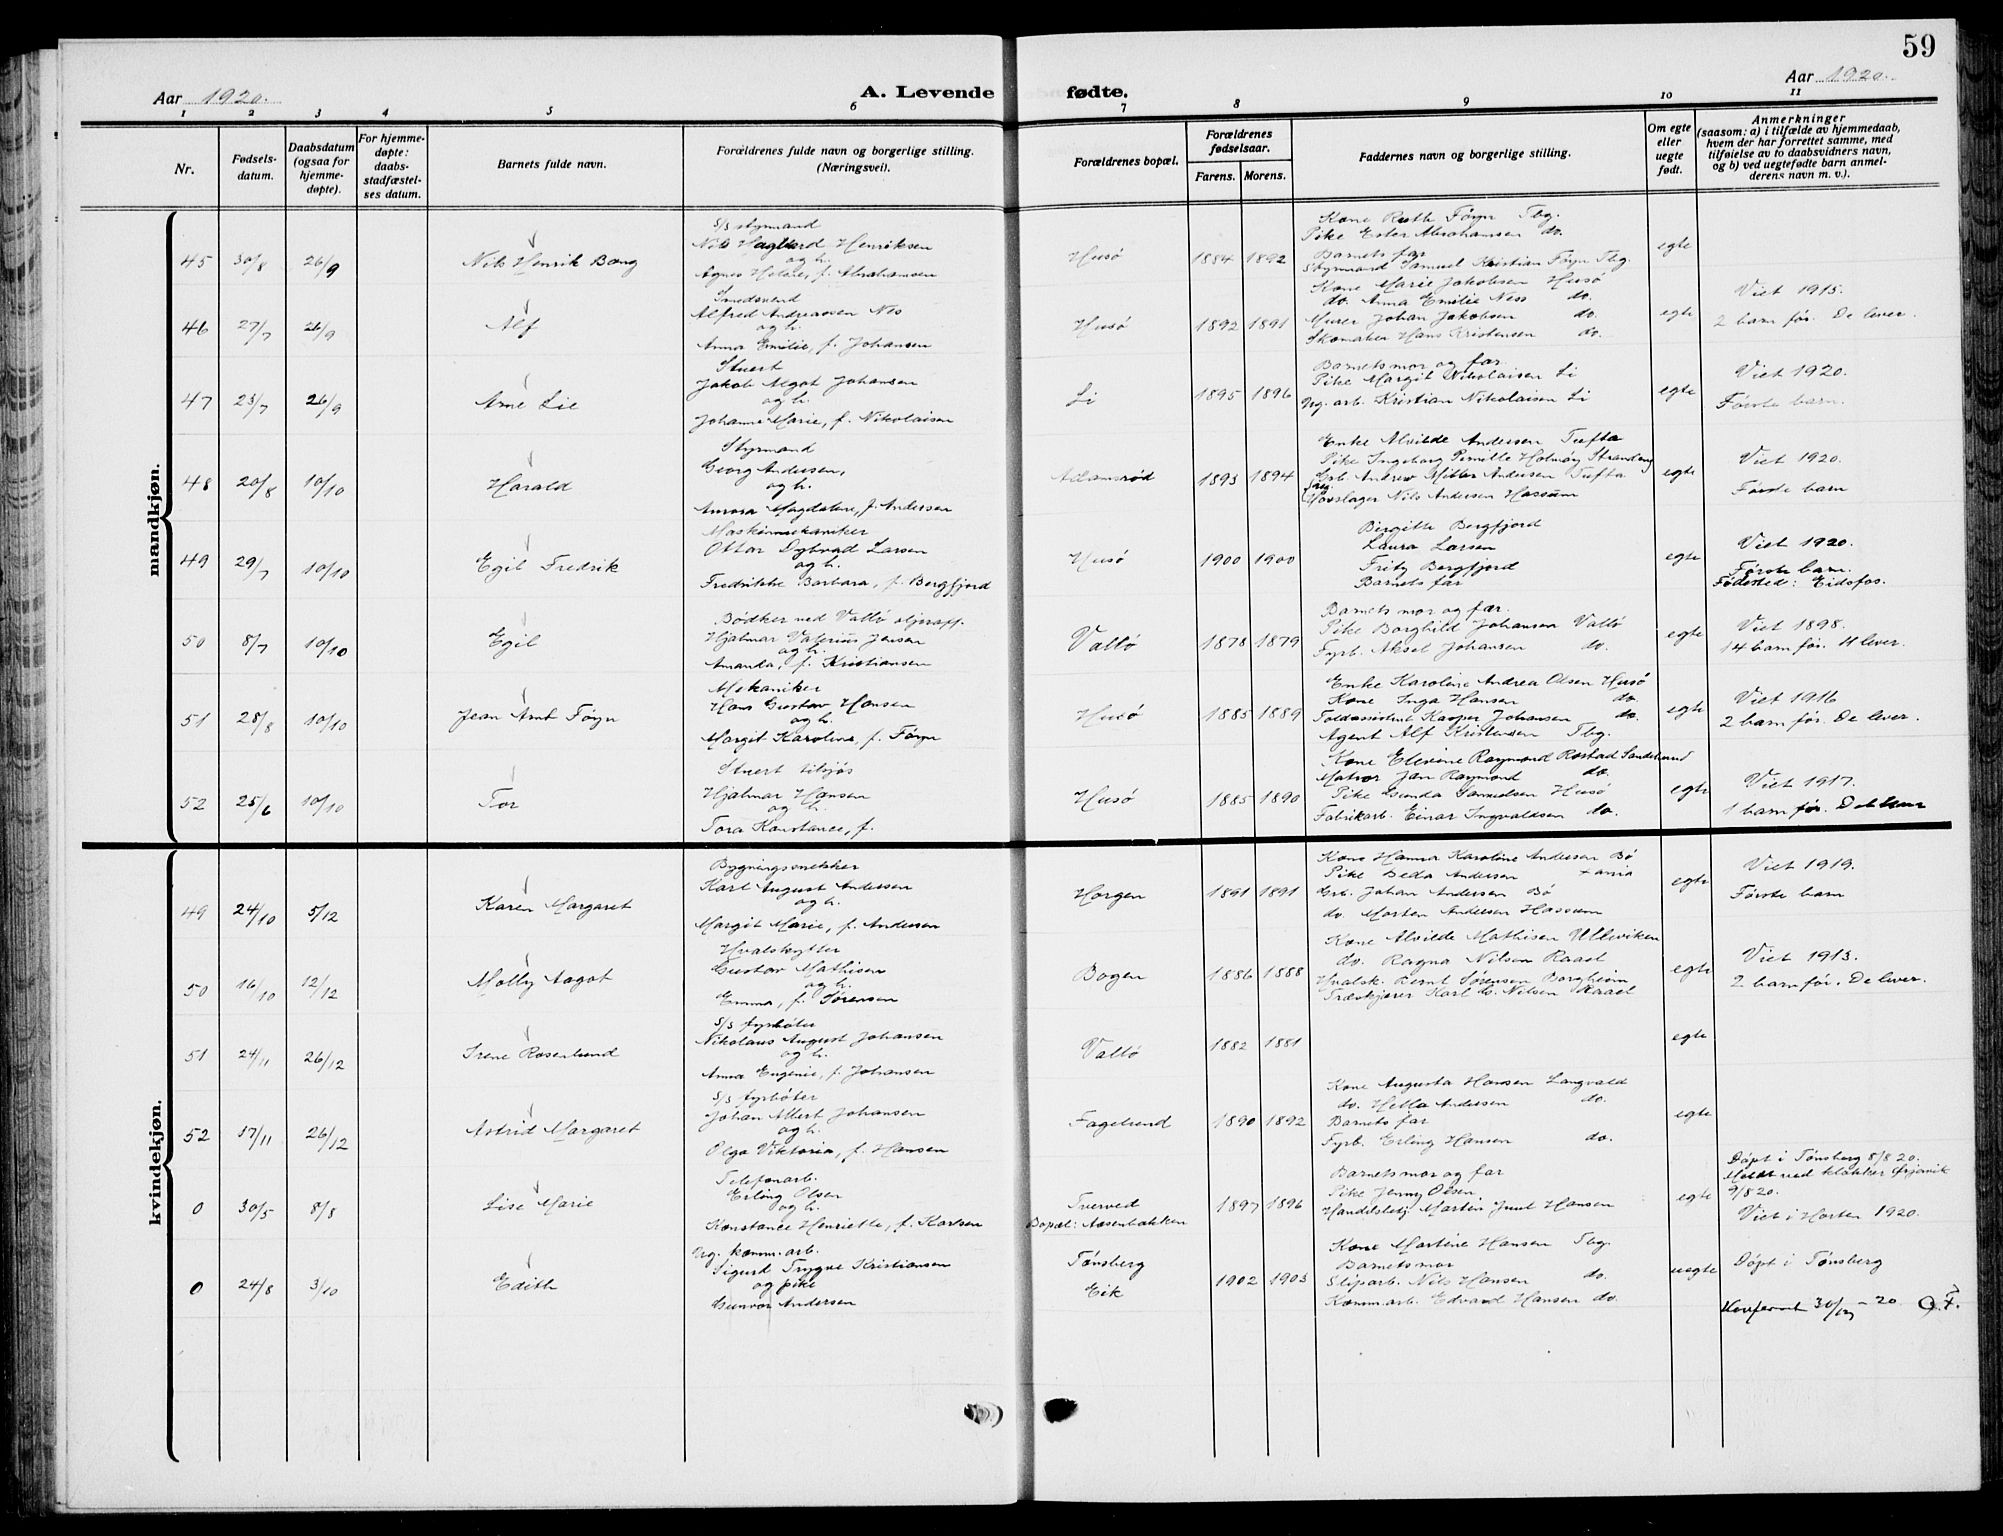 59
Aar 1920.
A. Levende fødte.
Aar 1920.
1 2 3 4 5 6 7 8 9 10 11
Nr.
Fødsels-
datum.
Daabsdatum
(ogsaa for
hjemme-
døpte).
For hjemme-
døpte:
daabs-
stadfæstel-
ses datum.
Barnets fulde navn.
Forældrenes fulde navn og borgerlige stilling.
(Næringsvei).
Forældrenes bopæl.
Forældrenes
fødselsaar.
Farens. Morens.
Faddernes navn og borgerlige stilling.
Om egte
eller
uegte
født.
Anmerkninger
(saasom: a) i tilfælde av hjemmedaab,
hvem der har forrettet samme, med
tilføielse av to daabsvidners navn,
og b) ved uegtefødte barn anmel-
derens navn m. v.).
mandkjøn.
45 30/8 26/9 Nils Henrik Bang
S/S styrmand
Nils Henriksen
og h.
Agnes Helene, f. Abrahamsen
Husö 1884 1892
Kone Ruth Föyn Tbg.
Pike Ester Abrahamsen do.
Barnets far
Styrmand Samuel Kristian Föyn Tbg.
egte
46 27/7 26/9 Alf
Smedsvend
Alfred Andreassen Nes
og h.
Anna Emilie, f. Johansen
Husö 1892 1891
Kone Marie Jakobsen Husö
do. Anna Emilie Ness do.
Murer Johan Jakobsen do.
Skomaker Hans Kristensen do.
egte
Viet 1915.
2 barn för. De lever.
47 23/7 26/9 Arne Lie
Stuert
Jakob Algot Johansen
og h.
Johanne Marie, f. Nikolaisen
Li 1895 1896
Barnets mor og far.
Pike Margit Nikolaisen Li
Ug. arb. Kristian Nikolaisen Li
egte
Viet 1920.
Första barn.
48 20/8 10/10 Harald
Styrmand
Georg Andersen,
og h.
Aurora Magdalene, f. Andersen
Adamsröd 1893 1894
Enke Alvilde Andersen Tufta
Pike Ingeborg Pernille Holmöy Stranden
Grb. Andrew Mitter Andersen Tufta
Hovslager Nils Andersen Hassum
egte
Viet 1920.
Förste barn
49 29/7 10/10 Egil Fredrik
Maskinmekaniker
Ottar Dybvad Larsen
og h.
Fredrikke Barbara, f. Bergfjord
Husö 1900 1900
Birgitte Bergfjord
Laura Larsen
Fritz Bergfjord
Barnets far
egte
Viet 1920.
Förste barn.
Födested: Eidsfos.
50 8/7 10/10 Egil
Bødker ved Vallö oljeraff.
Hjalmar Valerius Jensen
og h.
Amanda, f. Kristiansen
Vallö 1878 1879
Barnets mor og far.
Pike Borghild Johansen Vallö
Fyrb. Aksel Johansen do.
egte
Viet 1898.
14 barn för. 11 lever.
51 28/8 10/10 Jean Arnt Föyn
Mekaniker
Hans Gustav Hansen
og h.
Margit Karoline, f. Föyn
Husö 1885 1889
Enke Karoline Andrea Olsen Husö
Kone Inga Hansen do.
Toldassistent Kasper Johansen do.
Agent Alf Kristensen Tbg.
egte
Viet 1916
2 barn för. De lever.
52 25/6 10/10 Tor
Stuert tilsjøs
Hjalmar Hansen
og h.
Tora Konstance, f.
Husö 1885 1890
Kone Elevine Raymond Rostad Sandesund
Matros Jan Raymond do.
Pike Gunda Samuelsen Husö
Fabrikarb. Einar Ingvaldsen do.
egte
Viet 1917.
1 barn för. Det lever
kvindekjøn.
49 24/10 5/12 Karen Margaret
Bygningssnekker
Karl August Andersen
og h.
Margit Marie, f. Andersen
Horgen 1891 1891
Kone Hanna Karoline Andersen Bö
Pike Beda Andersen Xania
Grb. Johan Andersen Bö
do. Morten Andersen Hassum
egte
Viet 1919.
Förste barn
50 16/10 12/12 Molly Aagot
Hvalskytter
Gustav Mathisen
og h.
Emma, f. Sörensen
Bogen 1886 1888
Kone Alvilde Mathisen Ulleviken
do. Ragna Nilsen Raael
Hvalsk. Bernt Sörensen Borgheim
Træskjærer Karl do. Nilsen Raael
egte
Viet 1913.
2 barn för. De lever.
51 24/11 26/12 Irene Rosenlund
S/S fyrböter
Nikolaus August Johansen
og h.
Anna Eugenie, f. Johansen
Vallö 1882 1881
egte
52 17/11 26/12 Astrid Margaret
S/S fyrböter
Johan Albert Johansen
og h.
Olga Viktoria, f. Hansen
Fagelund 1890 1892
Kone Augusta Hansen Langvald
do. Hella Andersen do.
Barnets far
Fyrb. Erling Hansen do.
egte
0 30/5 8/8 Lise Marie
Telefonarb.
Erling Olsen
og h.
Konstance Henriette, f. Karlsen
Tverved
Bopæl: Aasenbakken
1897 1896
Barnets mor og far
Pike Jenny Olsen
Handelsbetj. Martin Juul Hansen
egte
Döpt i Tönsberg 8/8 20.
Meldt ved klokker Örjavik
9/8 20.
Viet i Horten 1920.
0 24/8 3/10 Edith
Ug. komm. arb.
Sigurd Trygve Kristiansen
og pike
Gunvor Andersen
Tönsberg
Eik
1902 1903
Kone Martine Hansen Tbg.
Barnets mor
Sliparb. Nils Hansen do.
Komm. arb. Edvard Hansen do.
uegte
Döpt i Tönsberg
Konferert 30/12 - 20 O. F.